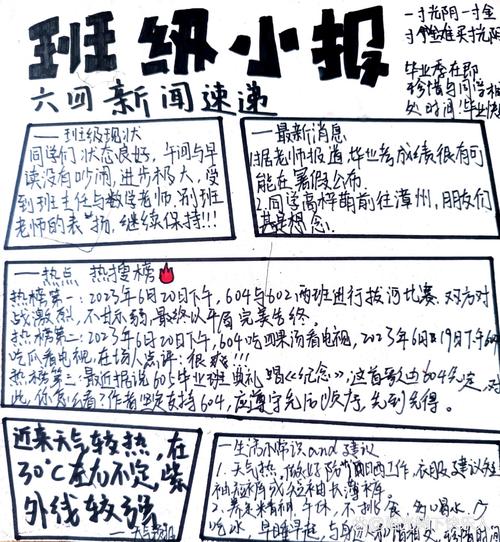 班级小报
六四新闻速递
一寸光阴一寸金
寸金难买寸光阴
毕业季在即
珍惜与同学相
处时间!毕业快
一班级现状
同学们状态良好,午间与早
读没有吵闹,进步极大,受
到班主任与数学老师,别班
老师的表扬,继续保持!!!
一最新消息
1.据老师报道毕业考成绩很有可
能在暑假公布
2.同学高梓萌前往漳州,朋友们
甚是想念.
一热点 热搜榜
热榜第一:2023年6月20日下午,604与602两班进行拔河比赛,双方对
战激烈,不甘示弱,最终以平局完美告终.
热榜第二:2023年6月20日下午,604吃四果汤看电视,2023年6月19日下午604
吃瓜看电视,在场人点评:很爽!!!
热榜第三:最近据说605毕业班典礼唱《纪念》,这首歌由604先定,对
此,你怎么看?作者坚定支持604,应遵守先后顺序,先到先得.
近来天气较热,在
30℃左右不定,紫
外线较强
一天气预报
一生活小常识and建议
1.天气热,做好防晒工作,衣服建议短
袖短裤或短袖长薄裤.
2.养足精神,午休,不挑食,多喝水,少
吃冰,早睡早起,与身边人和谐相处,